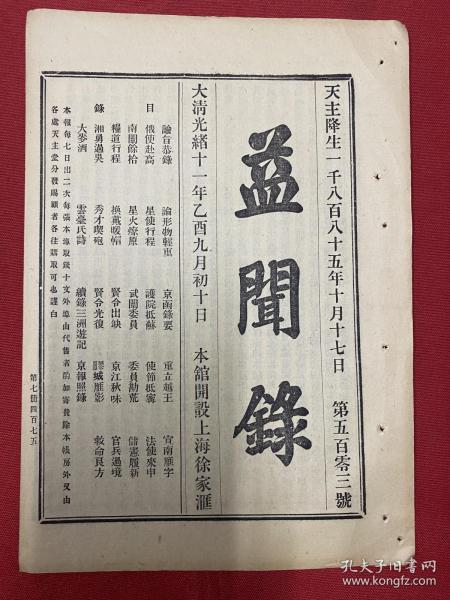 天主降生一千八百八十五年十月十七日　第五百零三號
益聞錄
大清光緒十一年乙酉九月初十日　本舘開設上海徐家滙
目錄
諭旨恭錄　論形物輕重　京函錄要　重立越王　宣南雁字
俄使赴高　星使行程　護院抵蘇　使節抵寗　法使來申
南關餘拾　星火燎原　武闈委員　委員勘荒　儲憲履新
糧道行程　換戴暖帽　賢令出缺　京江秋味　官兵過境
湘勇過吳　秀才喫砲　賢令光復　膠城雁影　救命良方
大麥酒　雲臺氏詩　續錄三洲遊記　京報照錄
本報每七日出二次每張本埠取錢十文外埠由代售者酌加寄費除本帳房外又由
各處天主堂分發賜顧者各往購取可也謹白
第七冊四百七五
孔夫子旧书网
kongfz.com